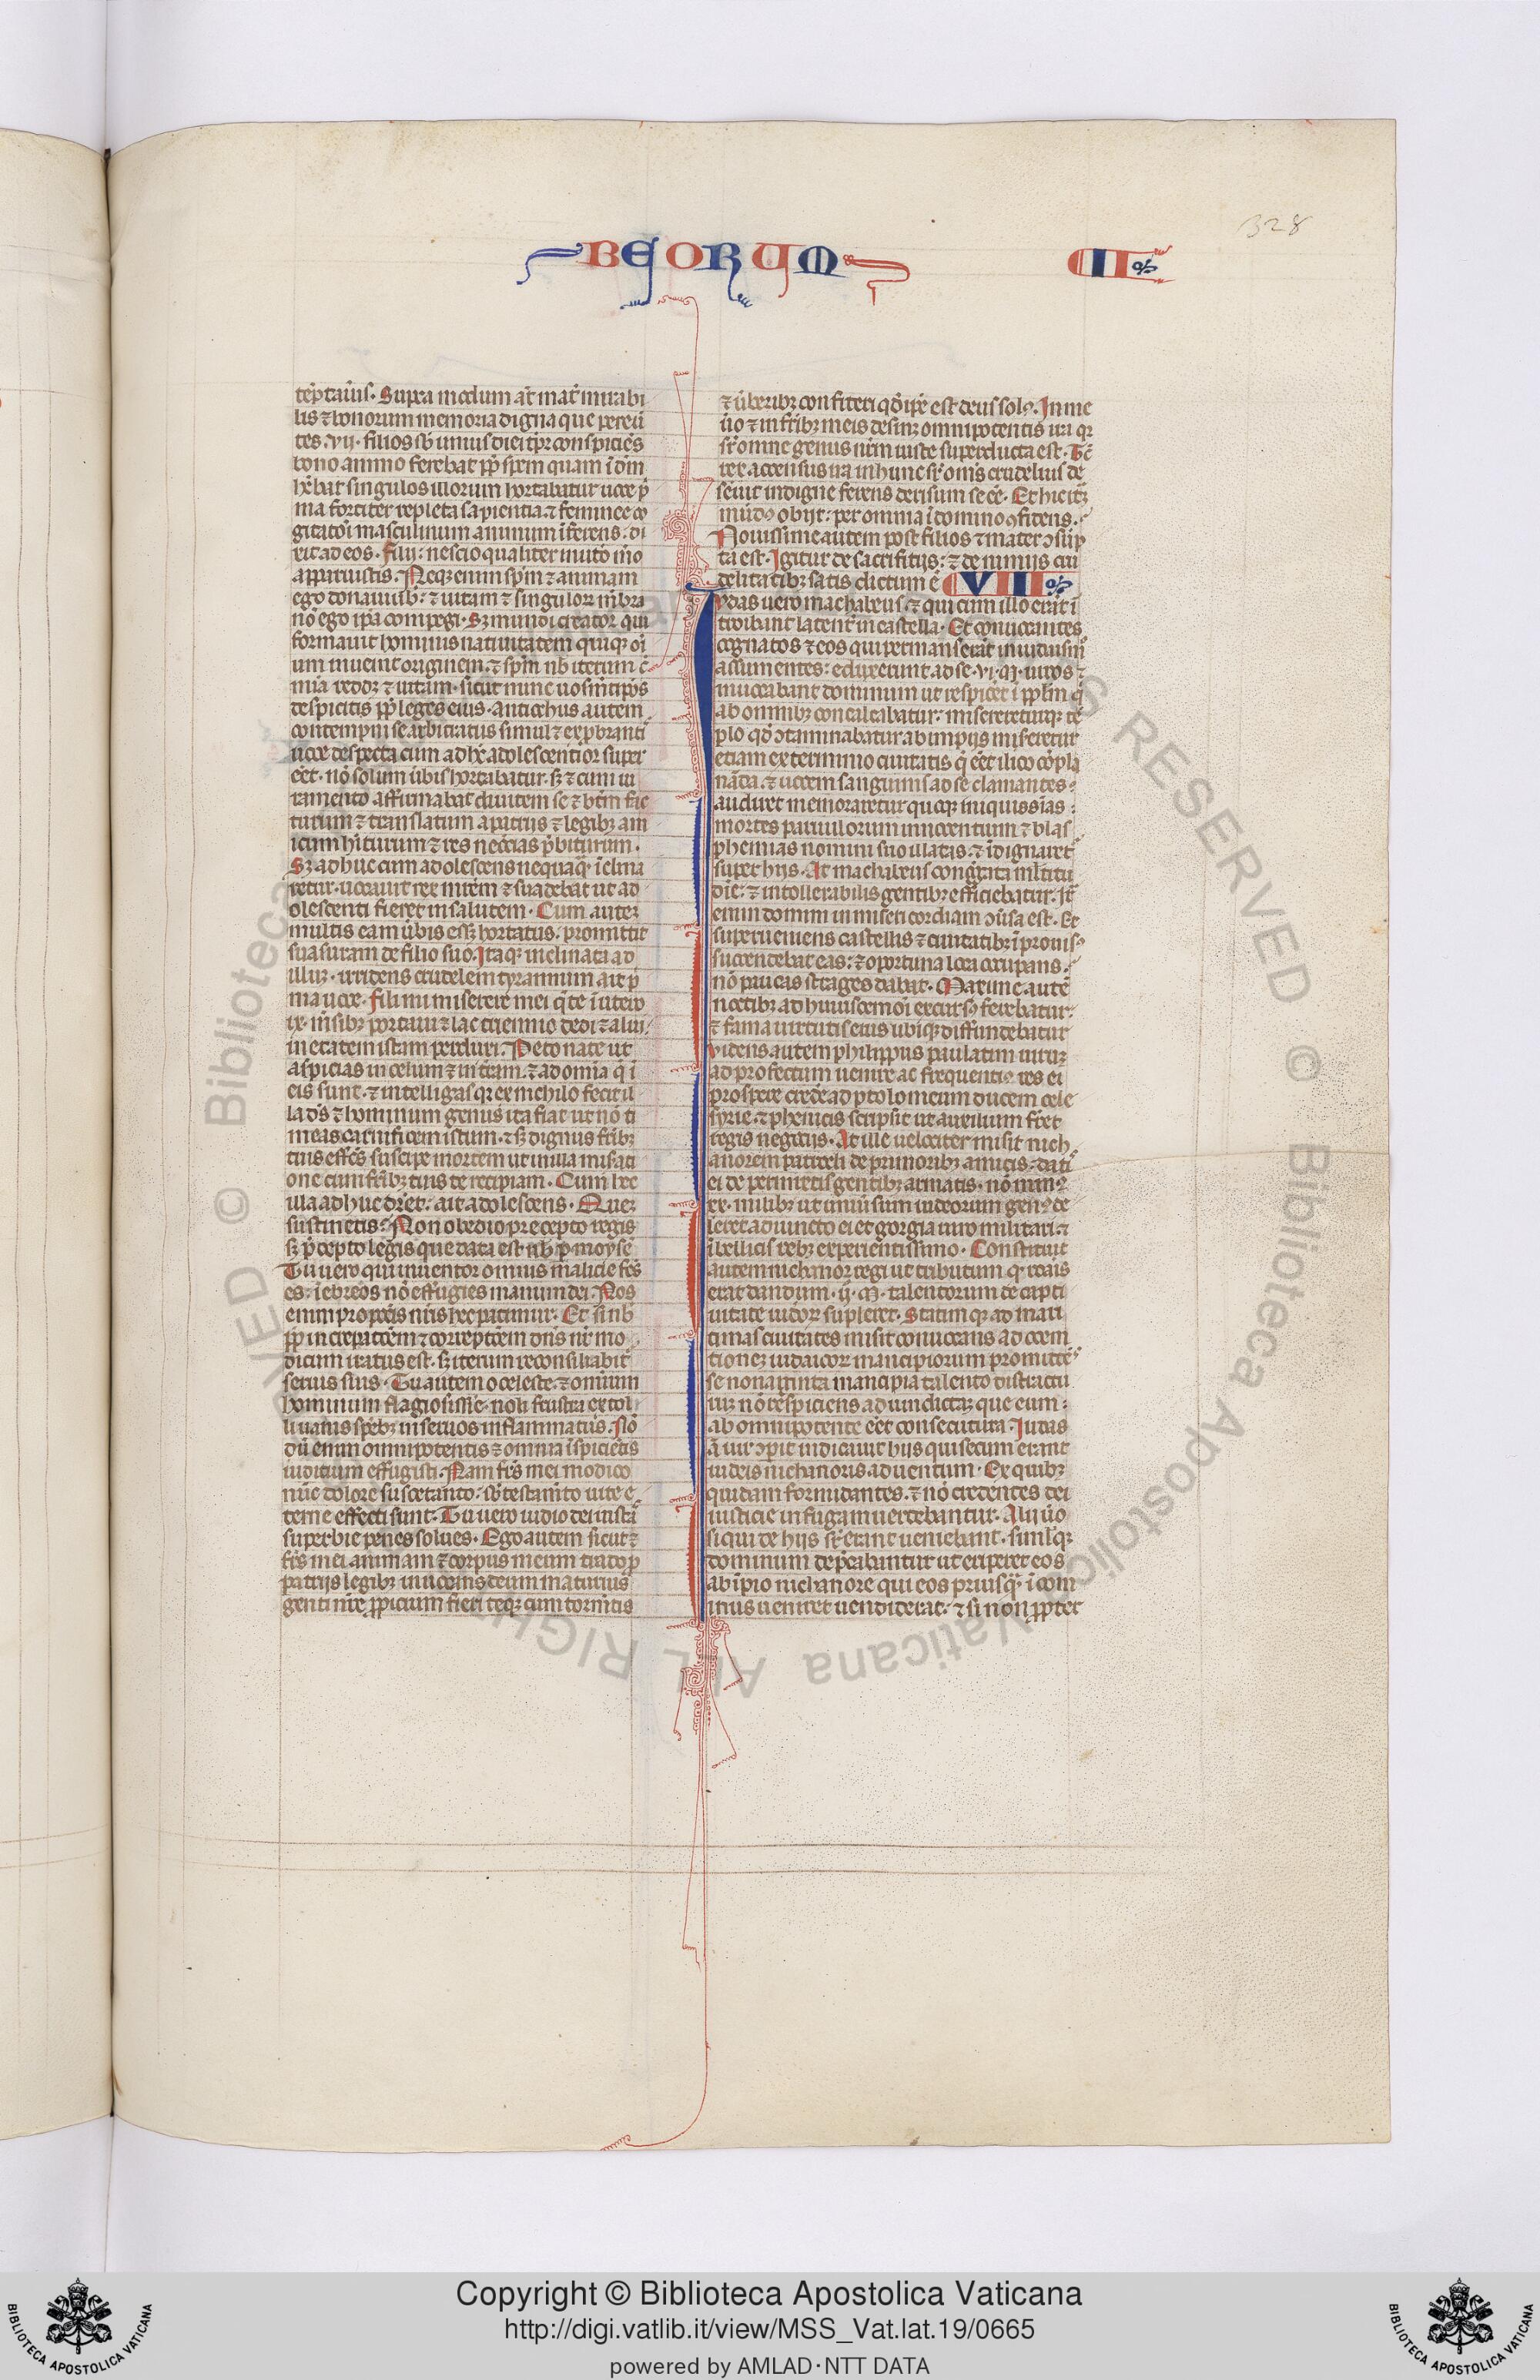 BEORUM II
328
tẽptaũis. Supra modum aũ mat̃ mirabi
lis ⁊ bonorum memoria digna que pereũ
tes .vij. filios sb̃ unius diei tp̃r conspiciẽs
bono animo ferebat pp̃ spem quam ĩ dm̃
hẽbat singulos illorum hortabatur uoce p̃
ma fortiter repleta sapientia. ⁊ feminee co
gitatiõi masculinum animum ĩferens. di
xit ad eos. Filij: nescio qualiter in utõ mõ
apparuistis. Neqꝫ enim spm̃ ⁊ animam
ego donaui uob̃: ⁊ uitam ⁊ singuloꝝ mẽbra
nõ ego ipa compegi. Sꝫ mundi creator qui
formauit hominis natiuitatem quiqꝫ oĩ
um inuenit originem. ⁊ spm̃ uob̃ iterum cũ
mĩa reddꝫ ⁊ uitam. sicut nunc uosmetip̃os
despicitis pp̃ leges eius. Antiochus autem
contempni se arbitratus simul ⁊ exp̃brantĩ
uoce despecta cum adhẽ adolescentior super
eẽt. nõ solum ũbis hortabatur. sꝫ ⁊ cum iu
ramento affirmabat diuitem se ⁊ bt̃m fac
turum ⁊ translatum a patrijs ⁊ legibꝫ am
icum hĩturum ⁊ res neccĩas p̃biturum.
Sꝫ ad huc cum adolescens nequaq̃ ĩclina
retur. uocauit rex mr̃em ⁊ suadebat ut ad
olescenti fieret in salutem. Cum autez
multis eam ũbis eẽt hortatus. promittit
suasuram de filio suo. Itaqꝫ inclinata ad
illuꝫ. irridens crudelem tyrannum ait p̃
ma uoce. Fili mi miserere mei q̃ te ĩ utero
ix. mẽsibꝫ portaui ⁊ lac triennio dedi ⁊ alui
in etatem istam perduxi. Peto nate ut
aspicias in celum ⁊ in terram. ⁊ ad omĩa q̃ ĩ
eis sunt. ⁊ intelligas qꝫ ex nichilo fecit il
la ds̃ ⁊ hominum genus ita fiat ut nõ ti
meas carnificem istum. sꝫ dignus frĩbꝫ
tuis effectꝰ suscipe mortem ut in illa miserati
one cum frĩbꝫ tuis te recipiam. Cum hec
illa adhuc dicẽt: ait adolescens. Queꝫ
sustinetis? Non obedio precepto regis
sꝫ p̃cepto legis que data est nb̃ p moysẽ
Tu uero qui inuentor omnis malicie fcs̃
es. ĩ ebreos nõ effugies manum dei. Nos
enim pro pccĩs nr̃is hec patimur. Et si nb̃
pp̃ increpatiõem ⁊ correptiõem dñs nr̃ mo
dicum iratus est. sꝫ iterum reconsiliabit̃
seruis suis. Tu autem o celeste. ⁊ omnium
hominum flagiosissĩe. noli frustra extol
li uanis spẽbꝫ in seruos inflammatus. Nõ
dũ enim omnipotentis ⁊ omnia ĩspicientis
iuditium effugisti. Nam frẽs mei modico
nũc dolore suscetanto: sb̃ testam̃to uite e
terne effecti sunt. Tu uero iudicio dei iustã
superbie penas solues. Ego autem sicut ⁊
frẽs mei animam ⁊ corpus meum trado p̃
patrijs legibꝫ inuocans deum maturius
genti nr̃e pp̃icium fieri teqꝫ cum torm̃tis
⁊ ũberibꝫ confiteri qđ ipẽ est deus solꝰ. In me
ũo ⁊ in frĩbꝫ meis desinꝫ omnipotentis ira qꝫ
sr̃ omne genus nr̃m iuste superducta est. Tc̃
rex accensus ira in hunc sr̃ omẽs crudelius de
seuit indigne ferens derisum se eẽ. Et hic itꝫ
mũdꝰ obijt: per omnia ĩ domino ꝯfitens.
Nouissime autem post filios ⁊ mater ꝯsũp
ta est. Igitur de sacrifitijs: ⁊ de nimijs cru
delitatibꝫ satis dictum ẽ. VIII
Iudas uero machabeus. ⁊ qui cum illo erãt ĩ
troibant latenter in castella. Et conuocantes
cognatos ⁊ eos qui permanserãt in iudaism̃
assumentes: eduxerunt ad se .vi. M. uiros ⁊
inuocabant dominum ut respicẽt ĩ pplm̃ q̃
ab omnibꝫ conculcabatur: misereretuꝛqꝫ tẽ
plo qđ ꝯtaminabatur ab impijs misereretur
etiam exterminio ciuitatis q̃ eẽt ilico cõpla
nãda. ⁊ uocem sanguinis ad se clamantes
audiret memoraretur quoqꝫ iniquissĩas
mortes paruulorum innocentium ⁊ blas
phemias nomini suo illatas. ⁊ ĩdignaret̃
super hijs. At machabeus congr̃ata mltitu
dĩe: ⁊ intollerabilis gentibꝫ efficiebatur. Ir̃
enim domini in misericordiam ꝯũsa est. Et
superueniens castellis ⁊ ciuitatibꝫ ĩprouisꝰ
succendebat eas: ⁊ oportuna loca occupans
nõ paucas strages dabat. Maxime autẽ
noctibꝫ ad huiuscemoĩ excursꝰ ferebatur.
⁊ fama uirtutis eius ubiqꝫ diffundebatur
Videns autem philippus paulatim uiruꝫ
ad profectum uenire ac frequentiꝰ res ei
prospere cedẽ ad ptolomeum ducem cele
syrie. ⁊ phenicis scripsit ut auxilium ferẽt
regis negocijs. At ille uelociter misit nich
anorem patrocli de primoribꝫ amicis. datĩ
ei de permixtis gentibꝫ armatis. nõ minꝰ
xx. milibꝫ ut uniũsum iudeorum genꝰ de
leret adiuncto ei et gorgia uiro militari. ⁊
ĩ bellicis rebꝫ experientissimo. Constituit
autem nichanor regi ut tributum qđ romãis
erat dandum .ij. M. talentorum de capti
uitate iudeoꝝ supleret. Statim qꝫ ad mari
timas ciuitates misit conuocans ad coem
tionez iudaicoꝝ mancipiorum promittẽs
se nonaginta mancipia talento distractu
ruꝫ nõ respiciens ad uindictaꝫ que eum
ab omnipotente eẽt consecutura. Iudas
ũ ubi ꝯperit indicauit hijs qui secum erant
iudeis nichanoris aduentum. Ex quibꝫ
quidam formidantes. ⁊ nõ credentes dei
iusticie in fugam uertebantur. Alij ũo
si qui de hijs sr̃ erant ueniebant. simulqꝫ
dominum dep̃cabantur ut eriperet eos
ab ĩpio nichanore qui eos priusq̃ ĩ com
inus ueniret uendiderat. ⁊ si non pp̃ter
Copyright © Biblioteca Apostolica Vaticana
http://digi.vatlib.it/view/MSS_Vat.lat.19/0665
powered by AMLAD·NTT DATA
BIBLIOTECA APOSTOLICA VATICANA
BIBLIOTECA APOSTOLICA VATICANA
Biblioteca Apostolica Vaticana ALL RIGHTS RESERVED ©